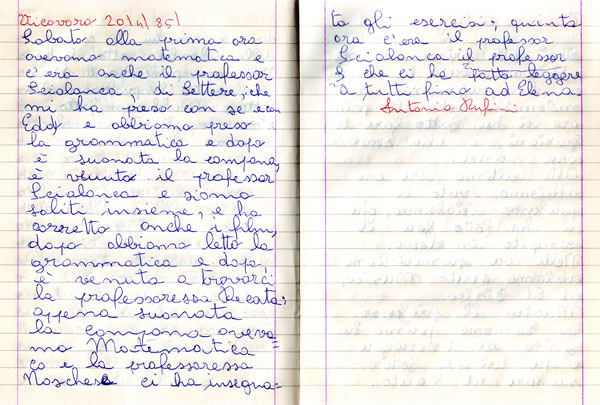 Vicovaro 20/4/85/
Sabato alla prima ora
avevamo matematica e
c'era anche il professor
Scialanca, di Settere, che
mi ha preso con se e con
Eddy e abbiamo preso
la grammatica e dopo
è suonata la campana,
è venuto il professor
Scialanca e siamo
saliti insieme, e ha
corretto anche i film,
dopo abbiamo letto la
grammatica e dopo,
è venuta a trovarci
la professoressa Recata;
appena suonata
la campana aveva=
mo Matematica
co e la professoressa
Noschese ci ha insegna=
to gli esercisi; quinta
ora c'era il professor
Scialanca il professor
S che ci ha fatto leggere
a tutti fino ad Elena.
Antonia Rufini